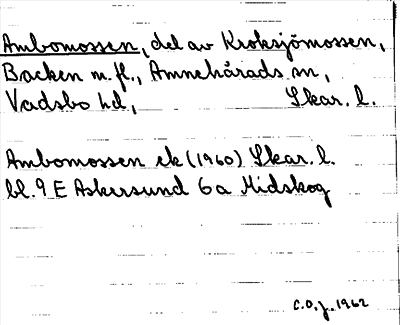 Ambomossen, del av Kroksjömossen,
Backen m.fl., Amnehärads sn,
Vadsbo hd, Skar. l.
Ambomossen ek (1960) Skar. l.
bl. 9 E Askersund 6a Midskog
C.O.J. 1962